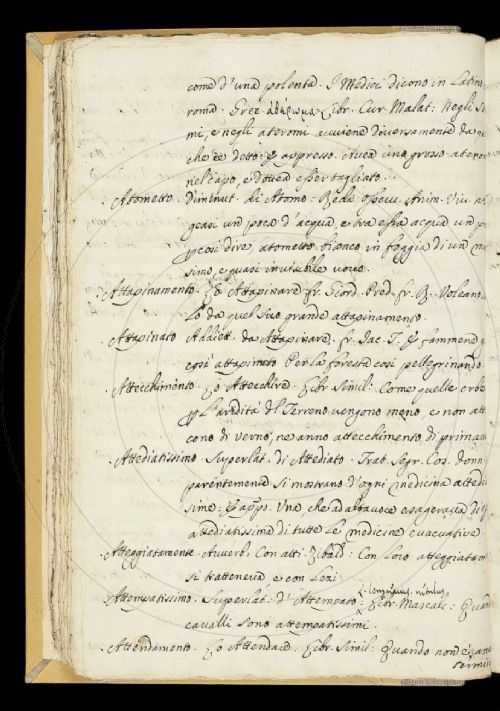 come d'una polenta. I Medici dicono in Latino
roma. Grec. ἀθέρωμα Libr. Cur. Malat: Negli
mi, e negli ateromi avviene diversamente da q
che è detto: E appresso. Avea uno grosso ateroma
nel capo, e dovea esser tagliato.
Atometto. Diminut. di Atomo. Red. Osserv. Anim. Viv.
geasi un poca d'acqua, e tra essa acqua un p
così dire, atometto bianco in foggia di un
simo, e quasi invisibile uovo.
Attapinamento. Lo Attapinare. Fr. Giord. Pred. Fr. B. Voleano
lo da quel suo grande attapinamento.
Attapinato Addiett. da Attapinare. Fr. Jac. T. E fammene
così attapinato Per la foresta così pellegrinando.
Attecchimento. Lo Attecchire. Libr. Simil: Come quelle erbe
per l'aredità del Terreno vengono meno, e non att
cono di verno, ne anno attecchimento di primav
Attediatissimo. Superlat. di Attediato. Trat. Segr. Cos. Donn.
parentemente si mostrano d'ogni medicina attedia
sime: E appo. Una che ad alta voce esagerava di
attediatissima di tutte le medicine evacuative.
Atteggiatamente. Avverb. Con atti. Zibald: Con loro atteggiatam
si tratteneva e con lezi.
longaevus. vetulus.
Attempatissimo. Superlat. d'Attempato: Libr. Mascalc: Quand
cavalli sono attempatissimi.
Attendamento. Lo Attendare. Libr. Simil: Quando non
termin